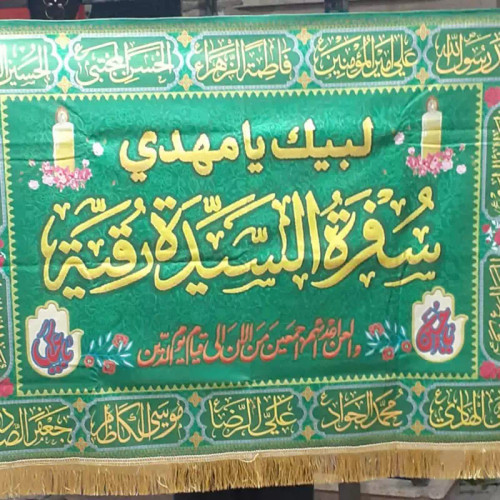 رسول الله علي أمير المؤمنين فاطمة الزهراء الحسن المجتبى الحسين
لبيك يا مهدي
سُفرَةُ السَّيِّدَة رُقيَّة
والعن أعدائهم أجمعين من الآن إلى قيام يوم الدين
الهادي محمد الجواد علي الرضا موسى الكاظم جعفر الصاد